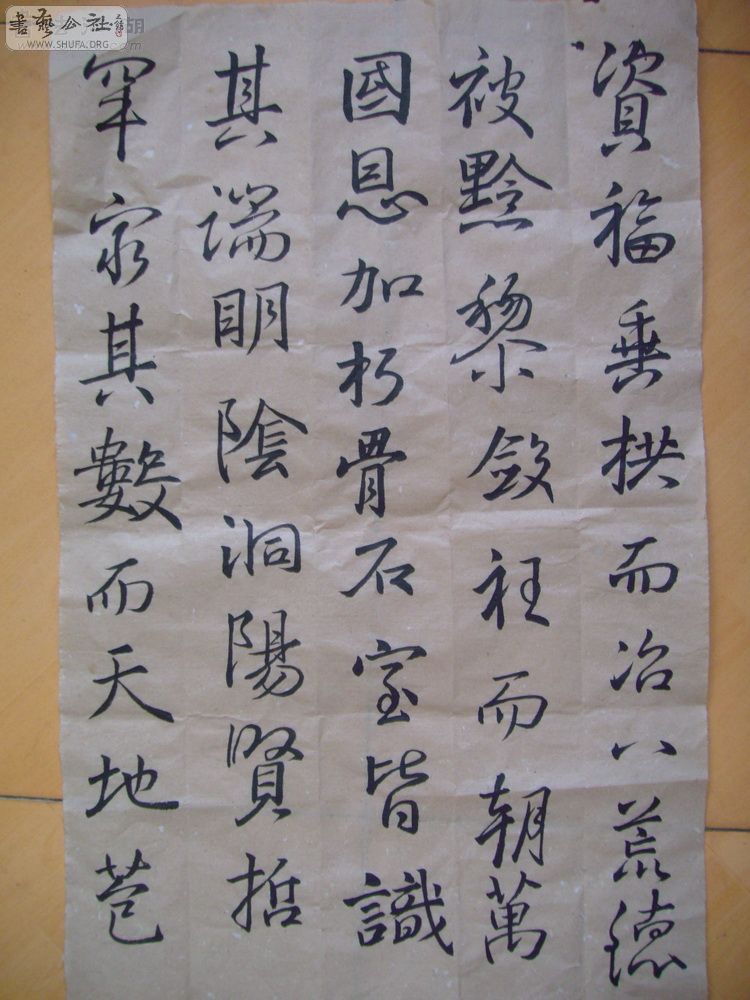 書藝公社
WWW.SHUFA.ORG
資福垂拱而治八荒德
被黔黎斂衽而朝萬
國恩加朽骨石室皆識
其端明陰洞陽賢哲
罕窮其數而天地苞